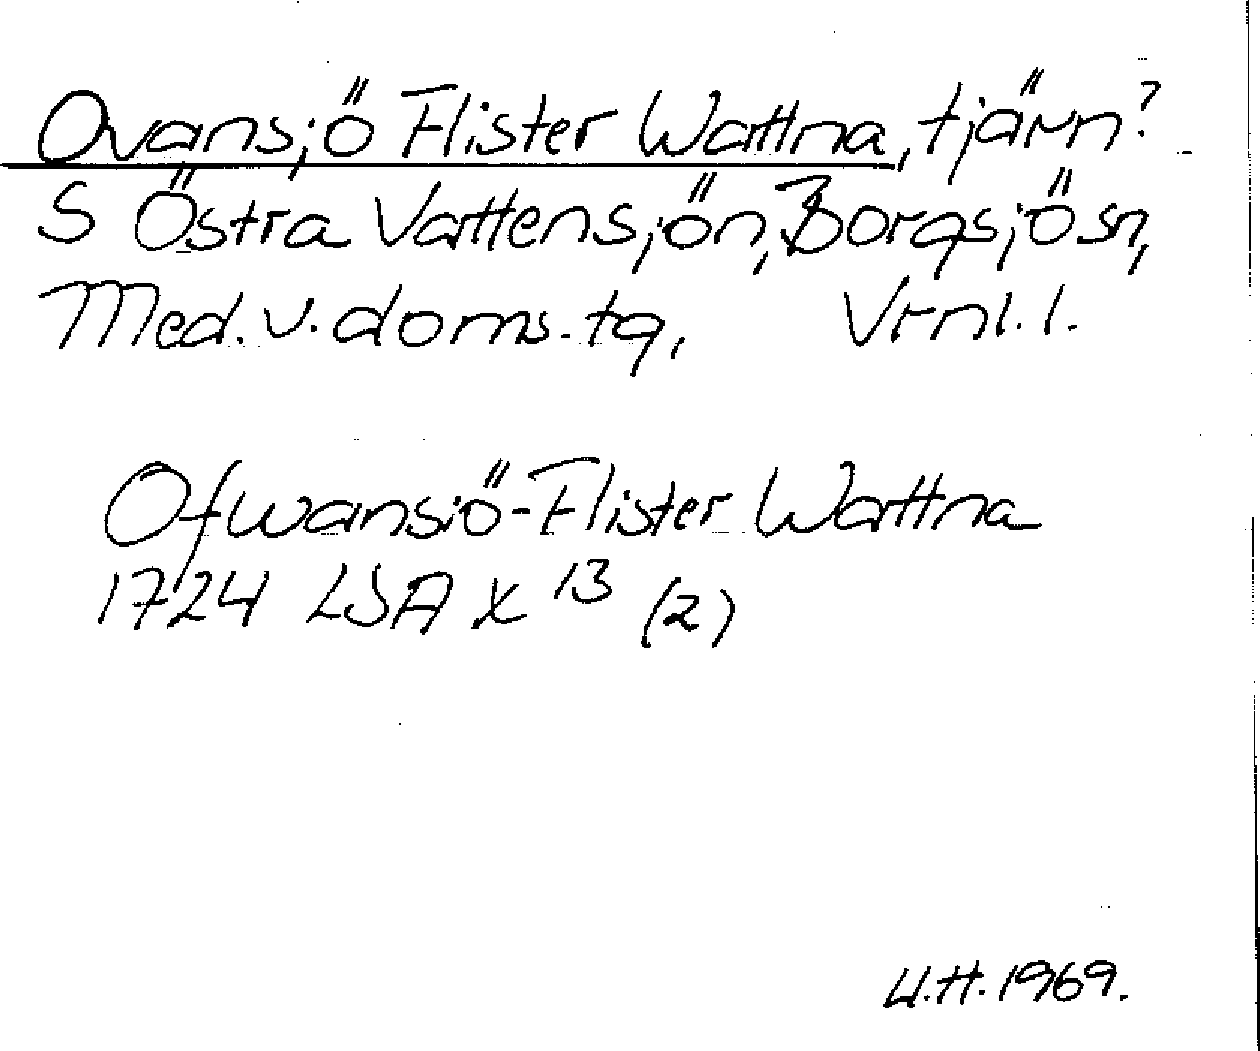 Ovansjö Flister Wattna, tjärn?
S Östra Vattensjön, Borgsjö sn,
Med. v. doms. tg, Vrnl. l.
Ofwansiö-Flister Wattna
1724 LSA X 13 (2)
U.H. 1969.